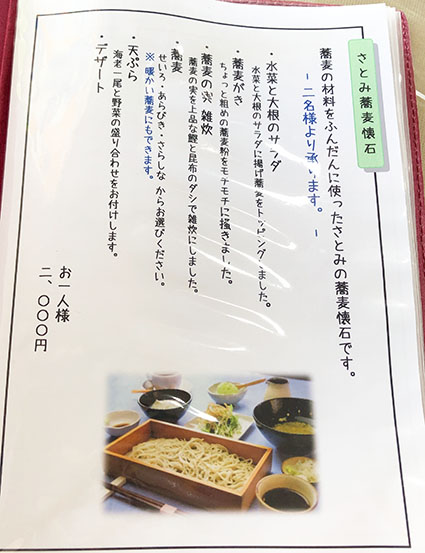 さとみ蕎麦懐石
蕎麦の材料をふんだんに使ったさとみの蕎麦懐石です。
－二名様より承ります。－
・水菜と大根のサラダ
水菜と大根のサラダに揚げ蕎麦をトッピングしました。
・蕎麦がき
ちょっと粗めの蕎麦粉をモチモチに掻きました。
・蕎麦の実 雑炊
蕎麦の実を上品な鰹と昆布のダシで雑炊にしました。
・蕎麦
せいろ・あらびき・さらしな からお選びください。
※ 暖かい蕎麦にもできます。
・天ぷら
海老一尾と野菜の盛り合わせをお付けします。
・デザート
お一人様
二、〇〇〇円